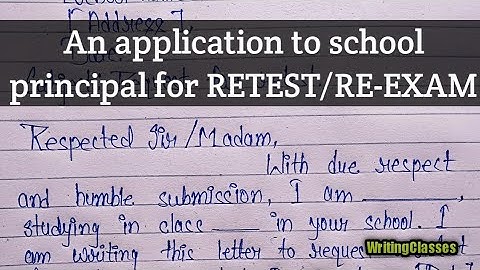 [Address],
An application to school
principal for RETEST/RE-EXAM
Respected Sir/Madam,
With due respect
and humble submission, I am ______,
studying in class ___ in your school. I
am writing this letter to request
WritingClasses